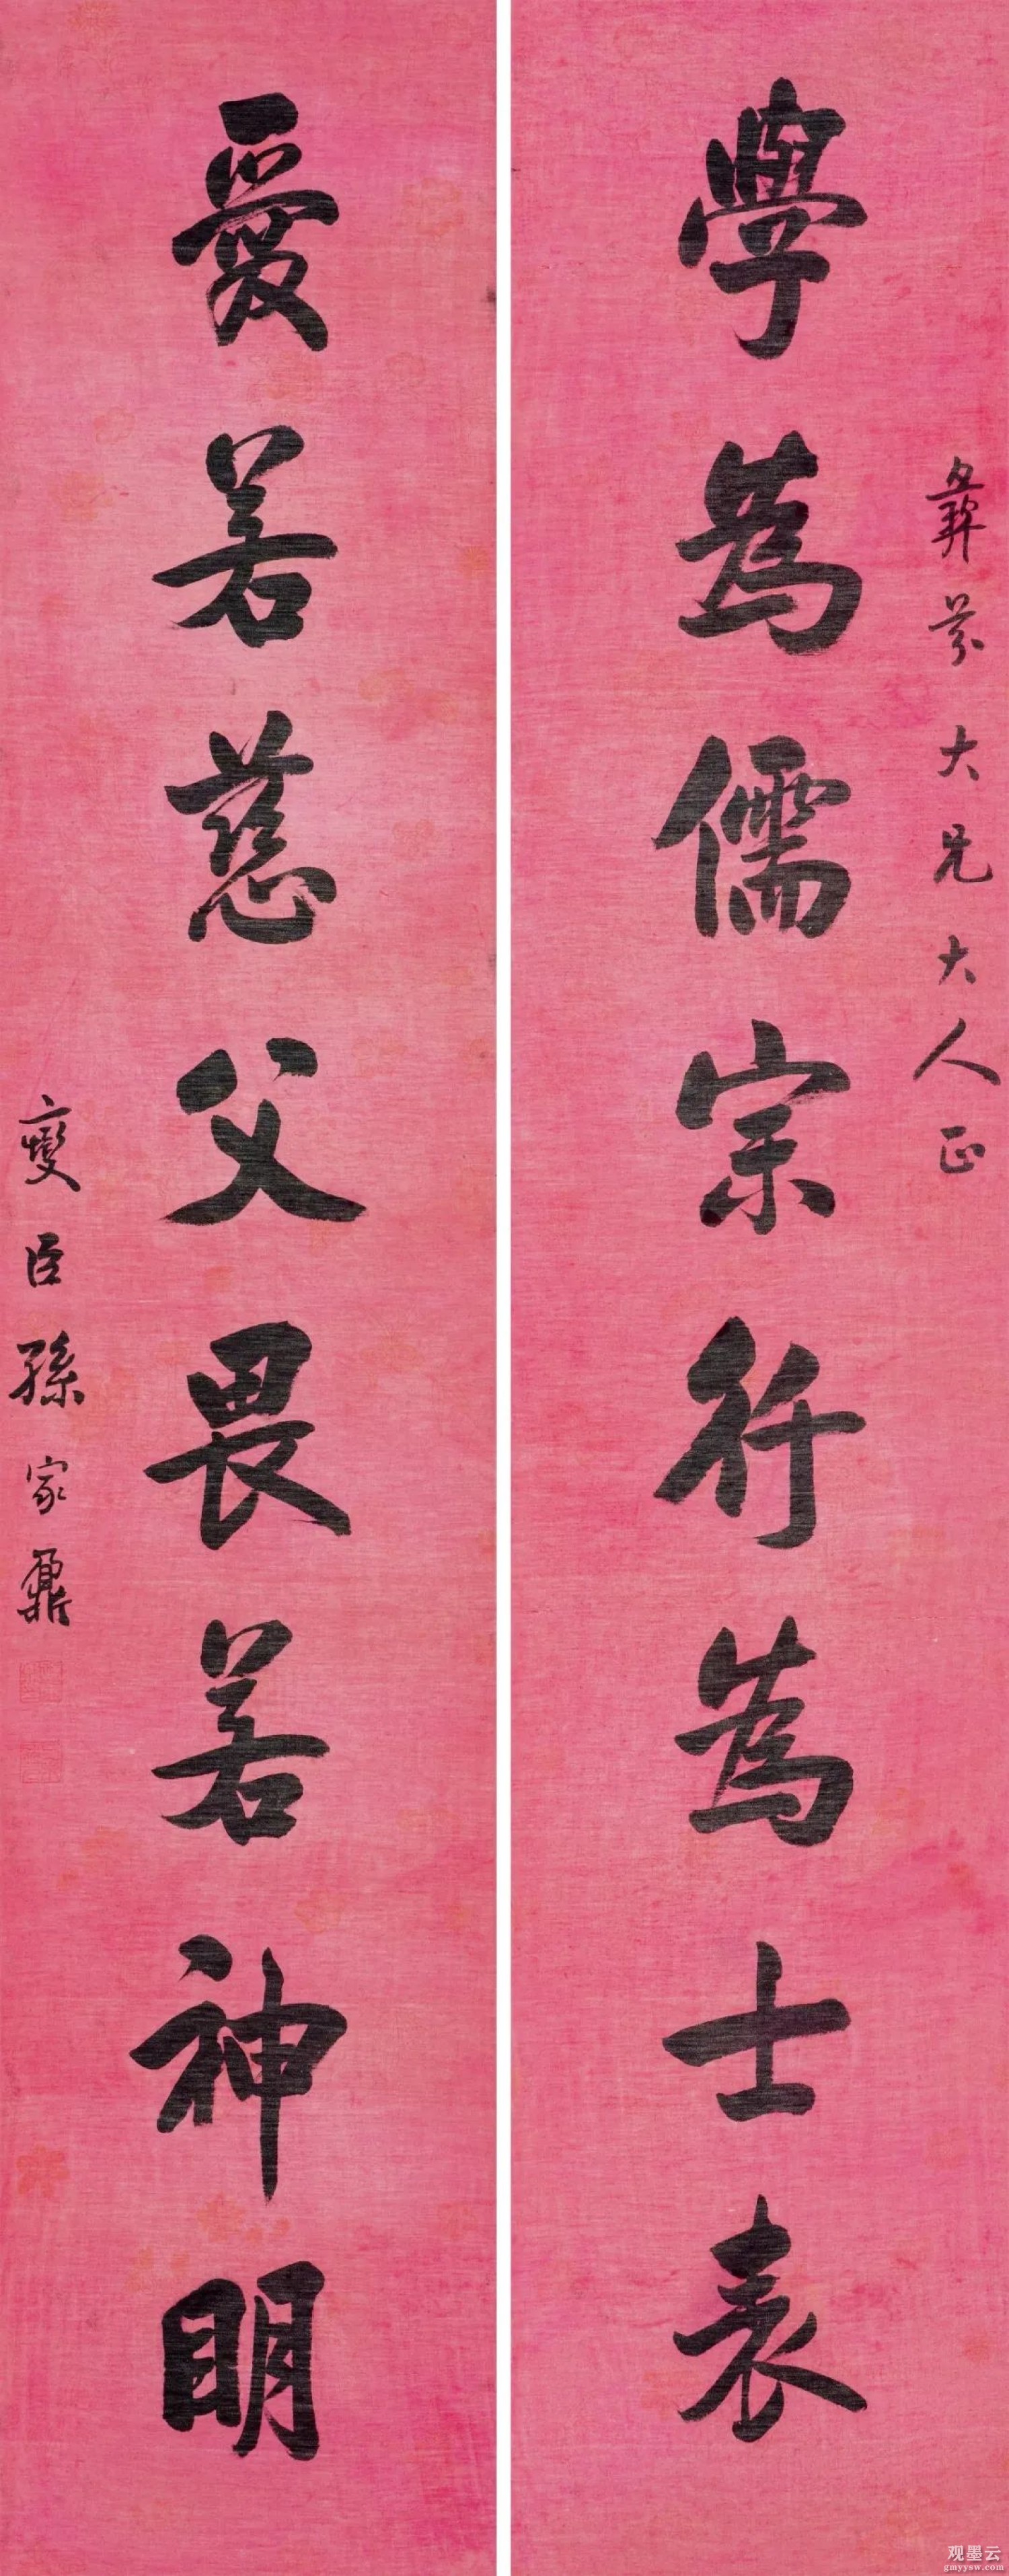 彝芬大兄大人正
學為儒宗行為士表
愛若慈父畏若神明
燮臣孫家鼐
观墨云
gmyysw.com